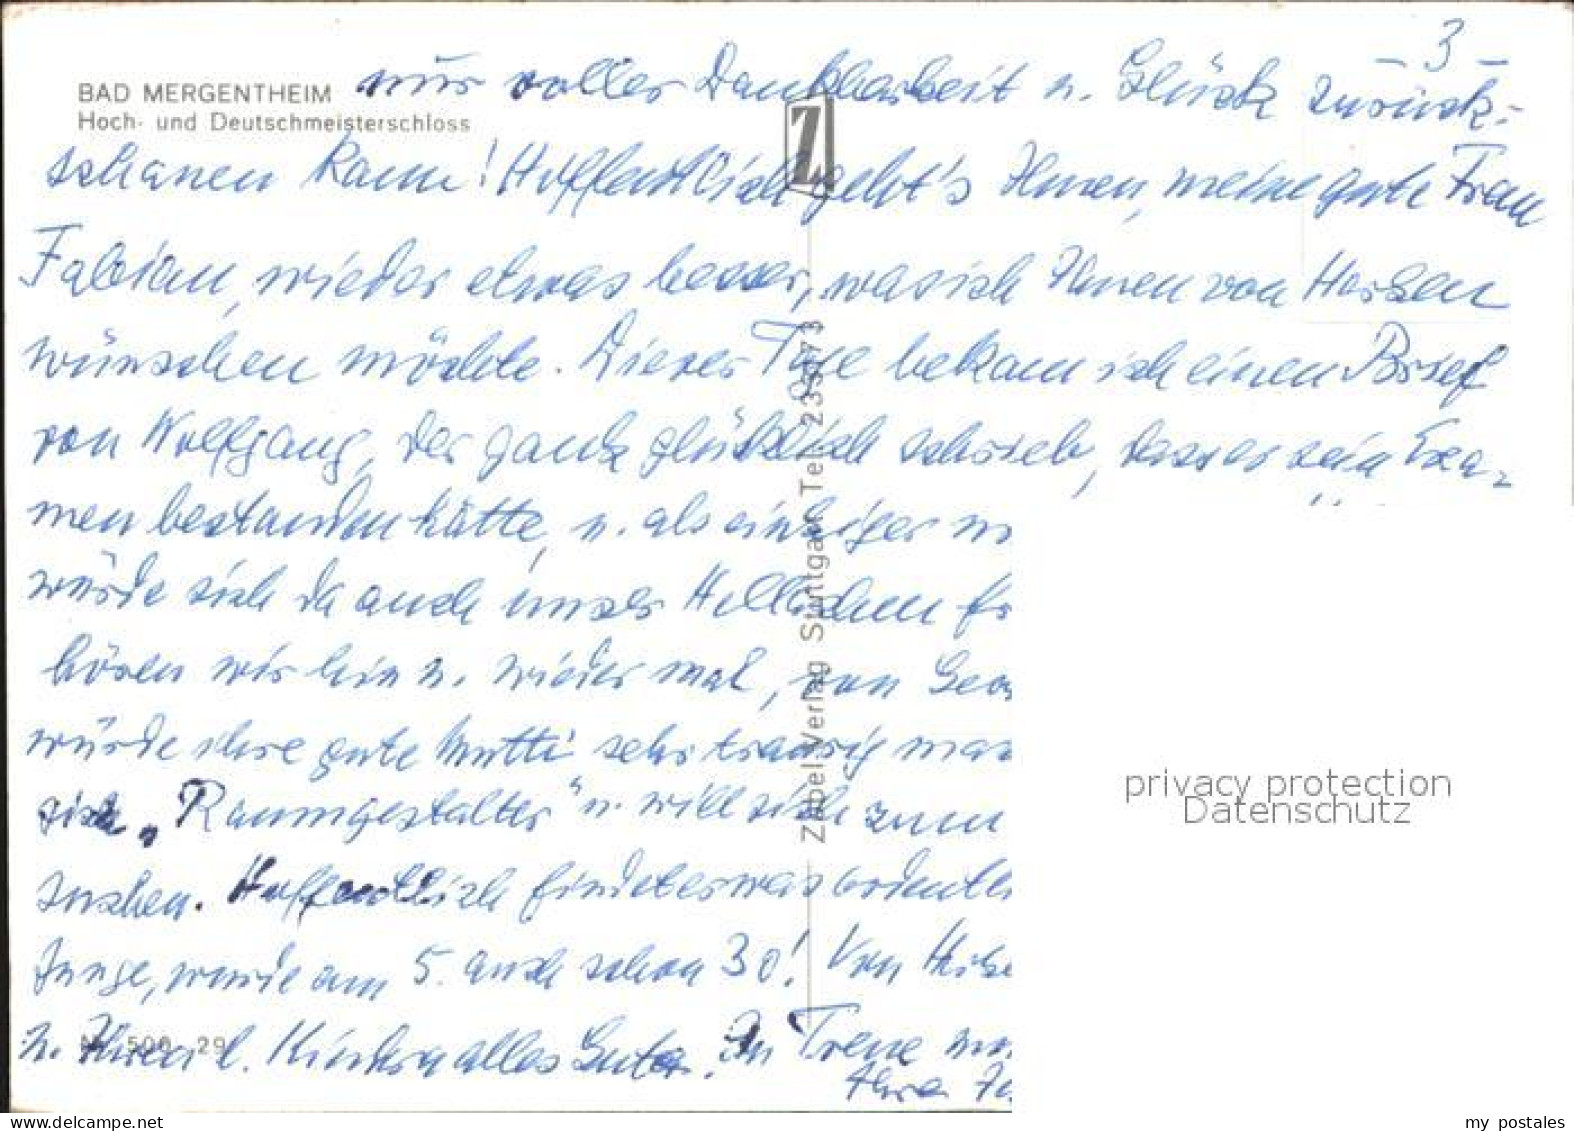 - 3 -
BAD MERGENTHEIM
Hoch- und Deutschmeisterschloss
nur voller Dankbarkeit u. Glück zurück-
schauen kann! Hoffentlich geht's Ihnen, meine gute Frau
Fabian, wieder etwas besser, was ich Ihnen von Herzen
wünschen möchte. Dieser Tage bekam ich einen Brief
von Wolfgang, der ganz glücklich schrieb, dass er sein Exa-
men bestanden hätte, u. als einziger
würde sich da auch unser
hören wir hin u. wieder mal, von
würde ihre gute Mutti sehr traurig
sich „Raumgestalter" u. will sich zum
suchen. Hoffentlich findet er was
Junge, wurde am 5. auch schon 30! Von
u. Ihren l. Kindern alles Gute. In Treue
Ihre
Z
Zabel Verlag Stuttgart Tel. 235973
Nr. 500 29
privacy protection
Datenschutz
my postales
delcampe.net